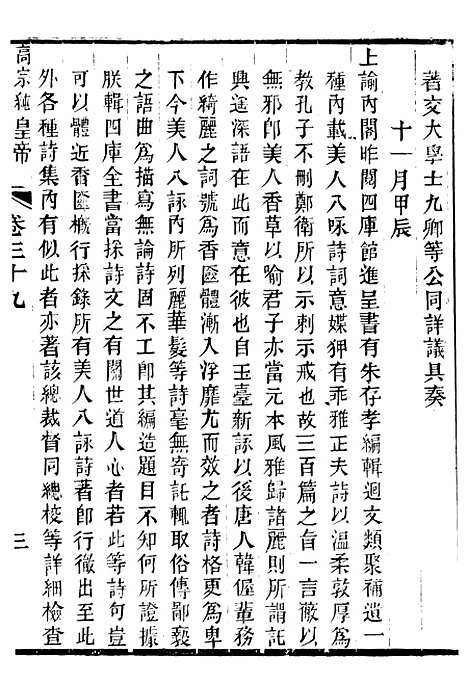 著交大學士九卿等公同詳議具奏
十一月甲辰
上諭內閣昨閱四庫館進呈書有朱存孝編輯迴文類聚補遺一
種內載美人八咏詩詞意媟狎有乖雅正夫詩以溫柔敦厚爲
教孔子不刪鄭衛所以示刺示戒也故三百篇之旨一言蔽以
無邪卽美人香草以喻君子亦當元本風雅歸諸麗則所謂託
興遙深語在此而意在彼自玉臺新詠以後唐人韓偓輩務
作綺麗之詞號爲香匳體漸入浮靡尤而效之者詩格更爲卑
下今美人八詠內所列麗華髮等詩毫無寄託輒取俗傳鄙褻
之語曲爲描寫無論詩固不工卽其編造題目不知何所證據
朕輯四庫全書當採詩文之有關世道人心者若此等詩句豈
可以體近香匳槪行採錄所有美人八詠詩著卽行撤出至此
外各種詩集內有似此者亦著該總裁督同總校等詳細檢查
高宗純皇帝 卷三十九 三